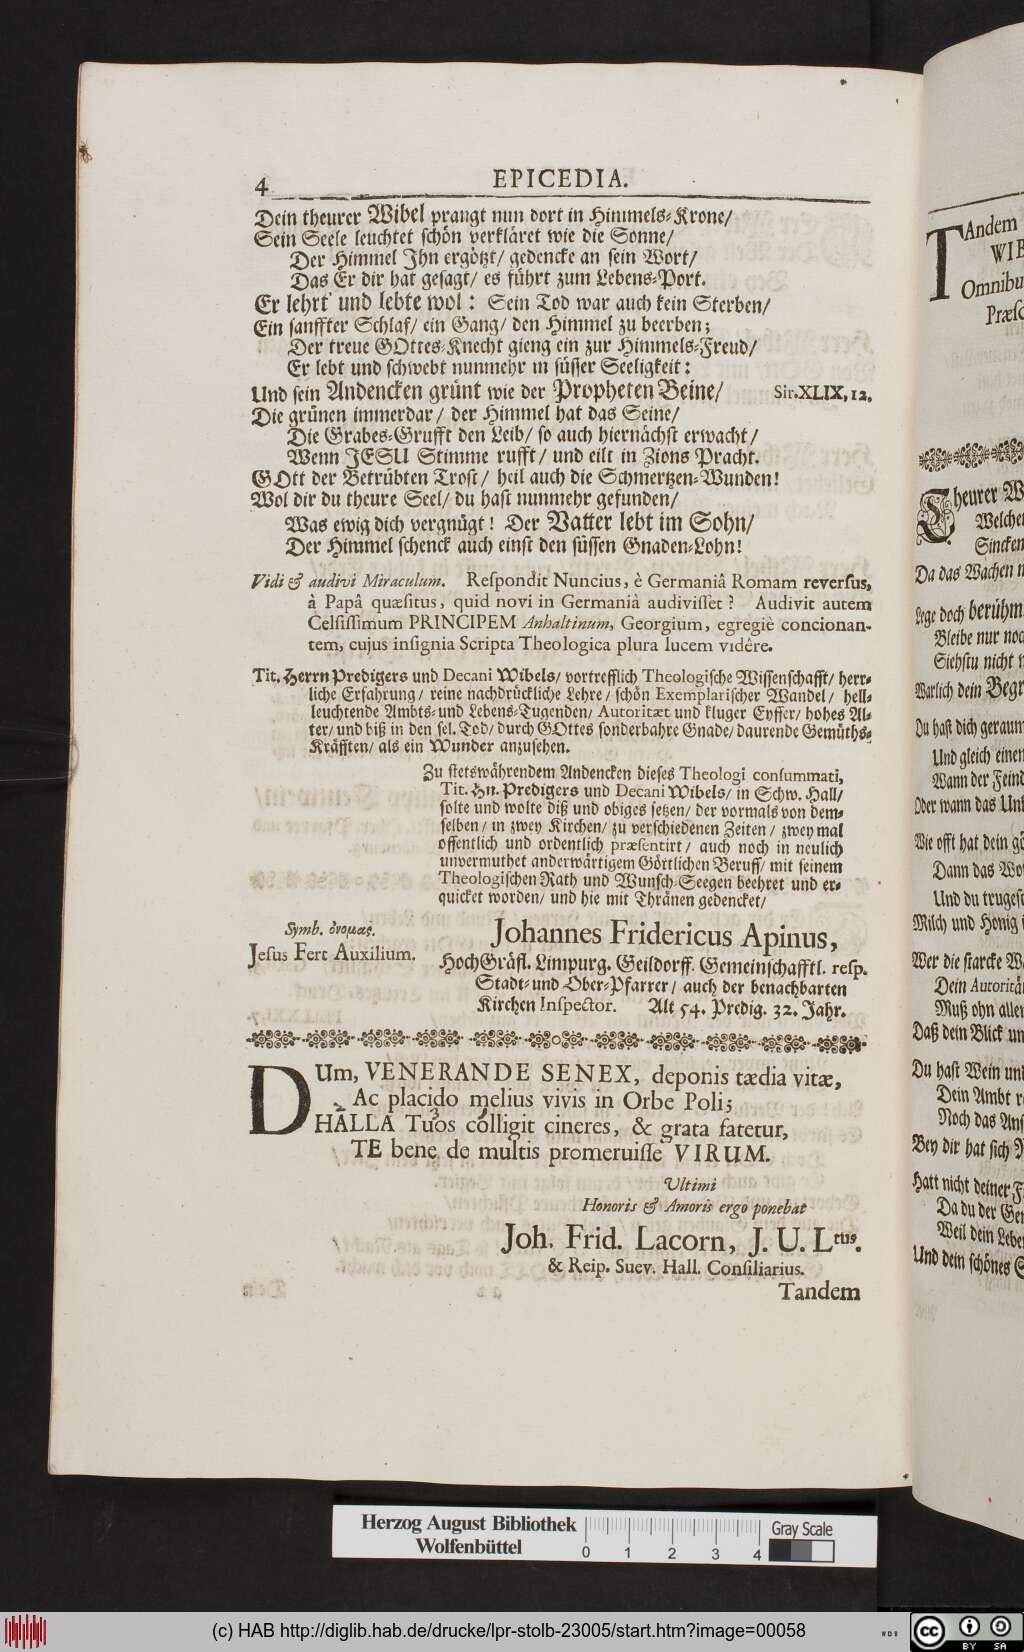 4 EPICEDIA.
Dein theurer Wibel prangt nun dort in Himmels-Krone/
Sein Seele leuchtet schön verkläret wie die Sonne/
Der Himmel Ihn ergötzt/ gedencke an sein Wort/
Das Er dir hat gesagt/ es führt zum Lebens-Port.
Er lehrt und lebte wol: Sein Tod war auch kein Sterben/
Ein sanffter Schlaf/ ein Gang/ den Himmel zu beerben;
Der treue GOttes-Knecht gieng ein zur Himmels-Freud/
Er lebt und schwebt nunmehr in süsser Seeligkeit:
Und sein Andencken grünt wie der Propheten Beine/ Sir. XLIX, 12.
Die grünen immerdar/ der Himmel hat das Seine/
Die Grabes-Grufft den Leib/ so auch hiernächst erwacht/
Wenn JESU Stimme rufft/ und eilt in Zions Pracht.
GOtt der Betrübten Trost/ heil auch die Schmertzen-Wunden!
Wol dir du theure Seel/ du hast nunmehr gefunden/
Was ewig dich vergnügt! Der Vatter lebt im Sohn/
Der Himmel schenck auch einst den süssen Gnaden-Lohn!
Vidi & audivi Miraculum. Respondit Nuncius, è Germaniâ Romam reversus,
à Papâ quæsitus, quid novi in Germaniâ audivisset? Audivit autem
Celsissimum PRINCIPEM Anhaltinum, Georgium, egregiè concionan-
tem, cujus insignia Scripta Theologica plura lucem vidêre.
Tit. Herrn Predigers und Decani Wibels/ vortrefflich Theologische Wissenschafft/ herr-
liche Erfahrung/ reine nachdrückliche Lehre/ schön Exemplarischer Wandel/ hell-
leuchtende Ambts- und Lebens-Tugenden/ Autoritæt und kluger Eyffer/ hohes Al-
ter/ und biß in den sel. Tod/ durch GOttes sonderbahre Gnade/ daurende Gemüths-
Kräfften/ als ein Wunder anzusehen.
Zu stetswährendem Andencken dieses Theologi consummati,
Tit. Hn. Predigers und Decani Wibels/ in Schw. Hall/
solte und wolte diß und obiges setzen/ der vormals von dem-
selben/ in zwey Kirchen/ zu verschiedenen Zeiten/ zwey mal
offentlich und ordentlich præsentirt/ auch noch in neulich
unvermuthet anderwärtigem Göttlichen Beruff/ mit seinem
Theologischen Rath und Wunsch-Seegen beehret und er-
quicket worden/ und hie mit Thränen gedencket/
Symb. ὀνομας.
Jesus Fert Auxilium.
Johannes Fridericus Apinus,
HochGräfl. Limpurg. Geildorff. Gemeinschafftl. resp.
Stadt- und Ober-Pfarrer/ auch der benachbarten
Kirchen Inspector. Alt 54. Predig. 32. Jahr.
DUm, VENERANDE SENEX, deponis tædia vitæ,
Ac placido melius vivis in Orbe Poli;
HALLA Tuos colligit cineres, & grata fatetur,
TE bene de multis promeruisse VIRUM.
Ultimi
Honoris & Amoris ergo ponebat
Joh. Frid. Lacorn, J. U. Ltus.
& Reip. Suev. Hall. Consiliarius.
Tandem
TAndem
WIB
Omnibu
Præsc
Theurer W
Welchet
Sincken
Da das Wachen
Lege doch berühm
Bleibe nur noc
Siehstu nicht
Warlich dein Begr
Du hast dich geraum
Und gleich einen
Wann der Feind
Oder wann das Un
Wie offt hat dein gö
Dann das Wo
Und du truges
Milch und Honig
Wer die starcke W
Dein Autoritä
Muß ohn allen
Daß dein Blick un
Du hast Wein und
Dein Ambt
Noch das Ans
Bey dir hat sich
Hatt nicht deiner F
Da du der Ge
Weil dein Lebe
Und dein schönes
Herzog August Bibliothek
Wolfenbüttel
0 1 2 3 4
Gray Scale
(c) HAB http://diglib.hab.de/drucke/lpr-stolb-23005/start.htm?image=00058
WDB
cc BY SA